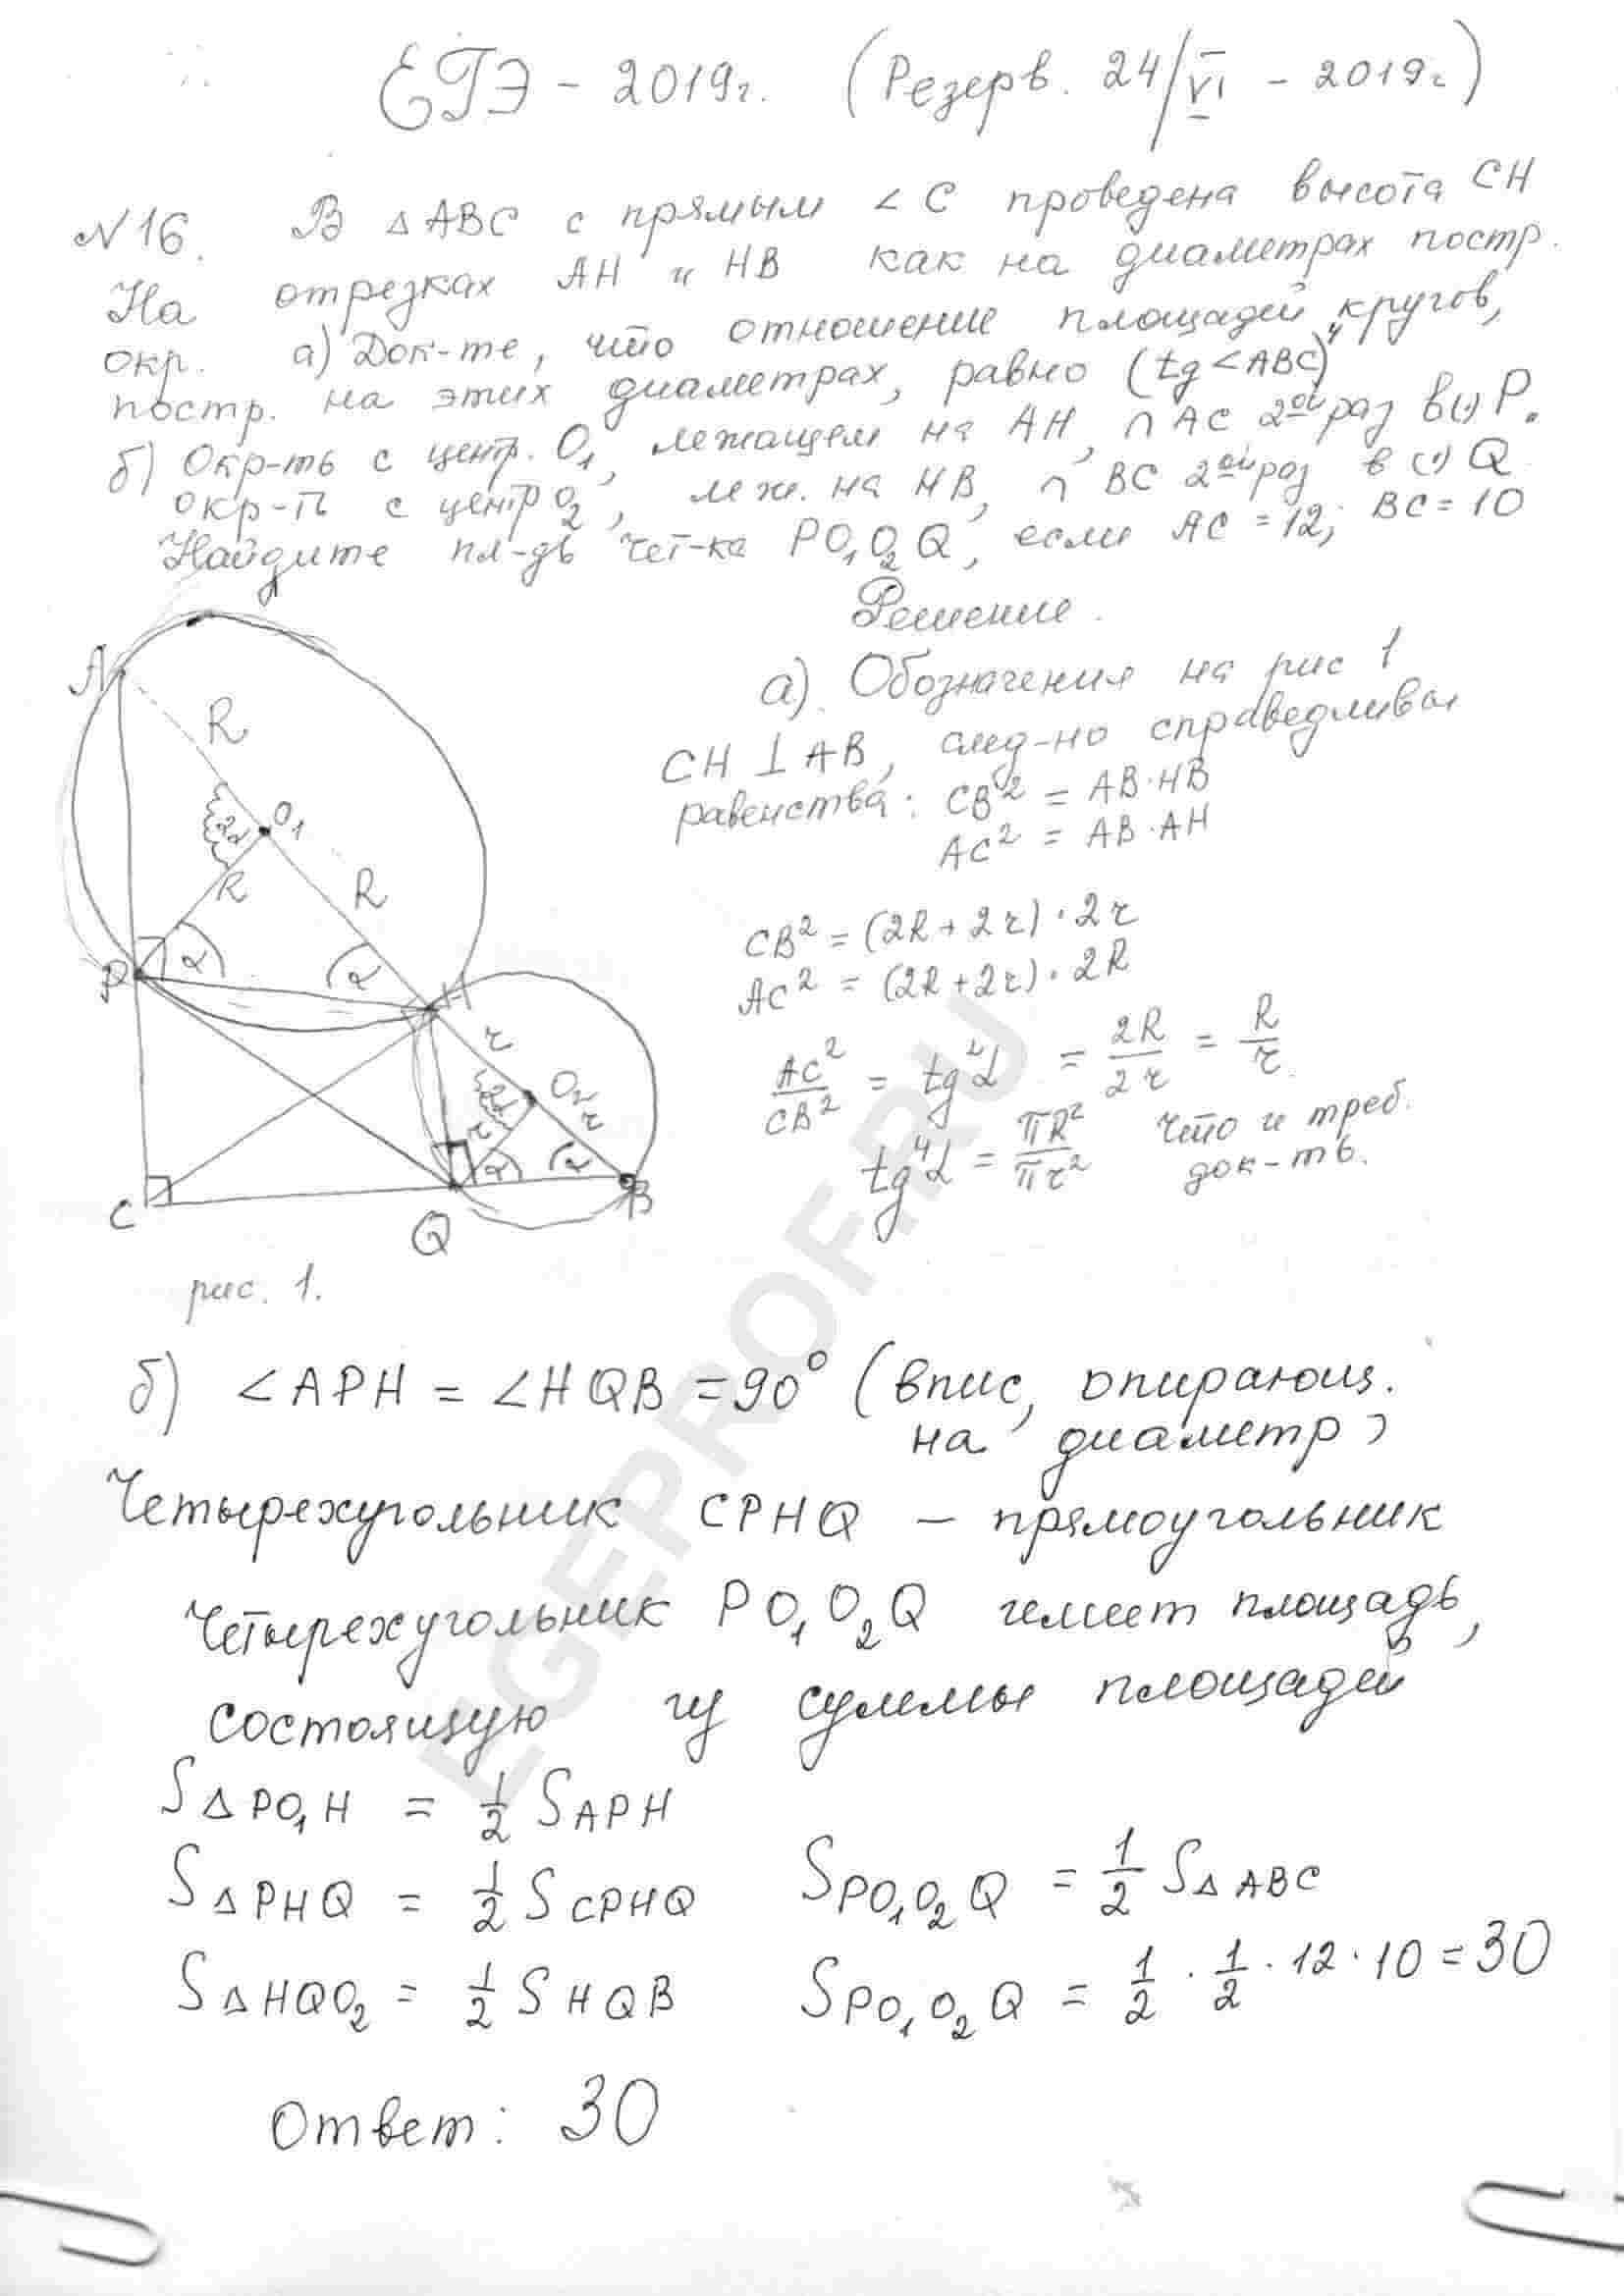 ЕГЭ - 2019г. (Резерв. 24/VI - 2019г)
№16. В △ABC с прямым ∠C проведена высота CH
На отрезках AH и HB как на диаметрах постр.
окр. а) Док-те, что отношение площадей кругов,
постр. на этих диаметрах, равно (tg∠ABC)⁴
б) Окр-ть с центр. O₁, лежащем на AH, ∩ AC 2ой раз в (·) P.
окр-ть с центр O₂, леж. на HB, ∩ BC 2ой раз в (·) Q
Найдите пл-дь чет-ка PO₁O₂Q, если AC = 12; BC = 10
Решение.
а). Обозначения на рис 1
CH ⊥ AB, след-но справедливы
равенства: CB² = AB·HB
AC² = AB·AH
CB² = (2R + 2r)·2r
AC² = (2R + 2r)·2R
AC²/CB² = tg²α = 2R/2r = R/r
tg⁴α = πR²/πr² что и треб.
док-ть.
A
R
O₁
2α
R
R
P
α
α
H
r
O₂
2α
r
r
α
α
C
Q
B
рис. 1.
б) ∠APH = ∠HQB = 90° (впис, опирающ.
на диаметр)
Четырехугольник CPHQ – прямоугольник
Четырехугольник PO₁O₂Q имеет площадь,
состоящую из суммы площадей
S△PO₁H = 1/2 SAPH
S△PHQ = 1/2 SCPHQ SPO₁O₂Q = 1/2 S△ABC
S△HQO₂ = 1/2 SHQB SPO₁O₂Q = 1/2 · 1/2 · 12 · 10 = 30
Ответ: 30
EGEPROF.RU